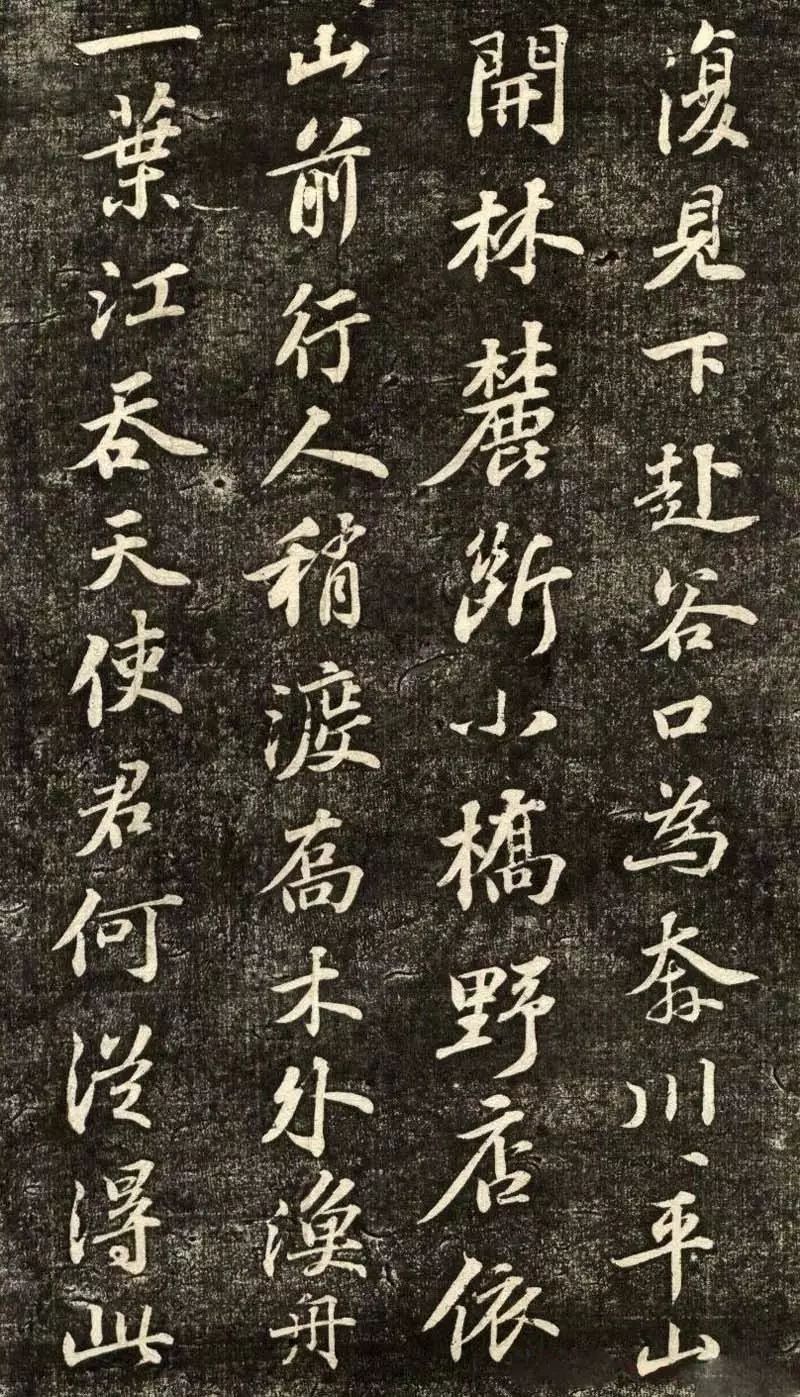 復見下赴谷口為奔川川平山
開林麓斷小橋野店依
山前行人稍渡喬木外漁舟
一葉江吞天使君何從得此